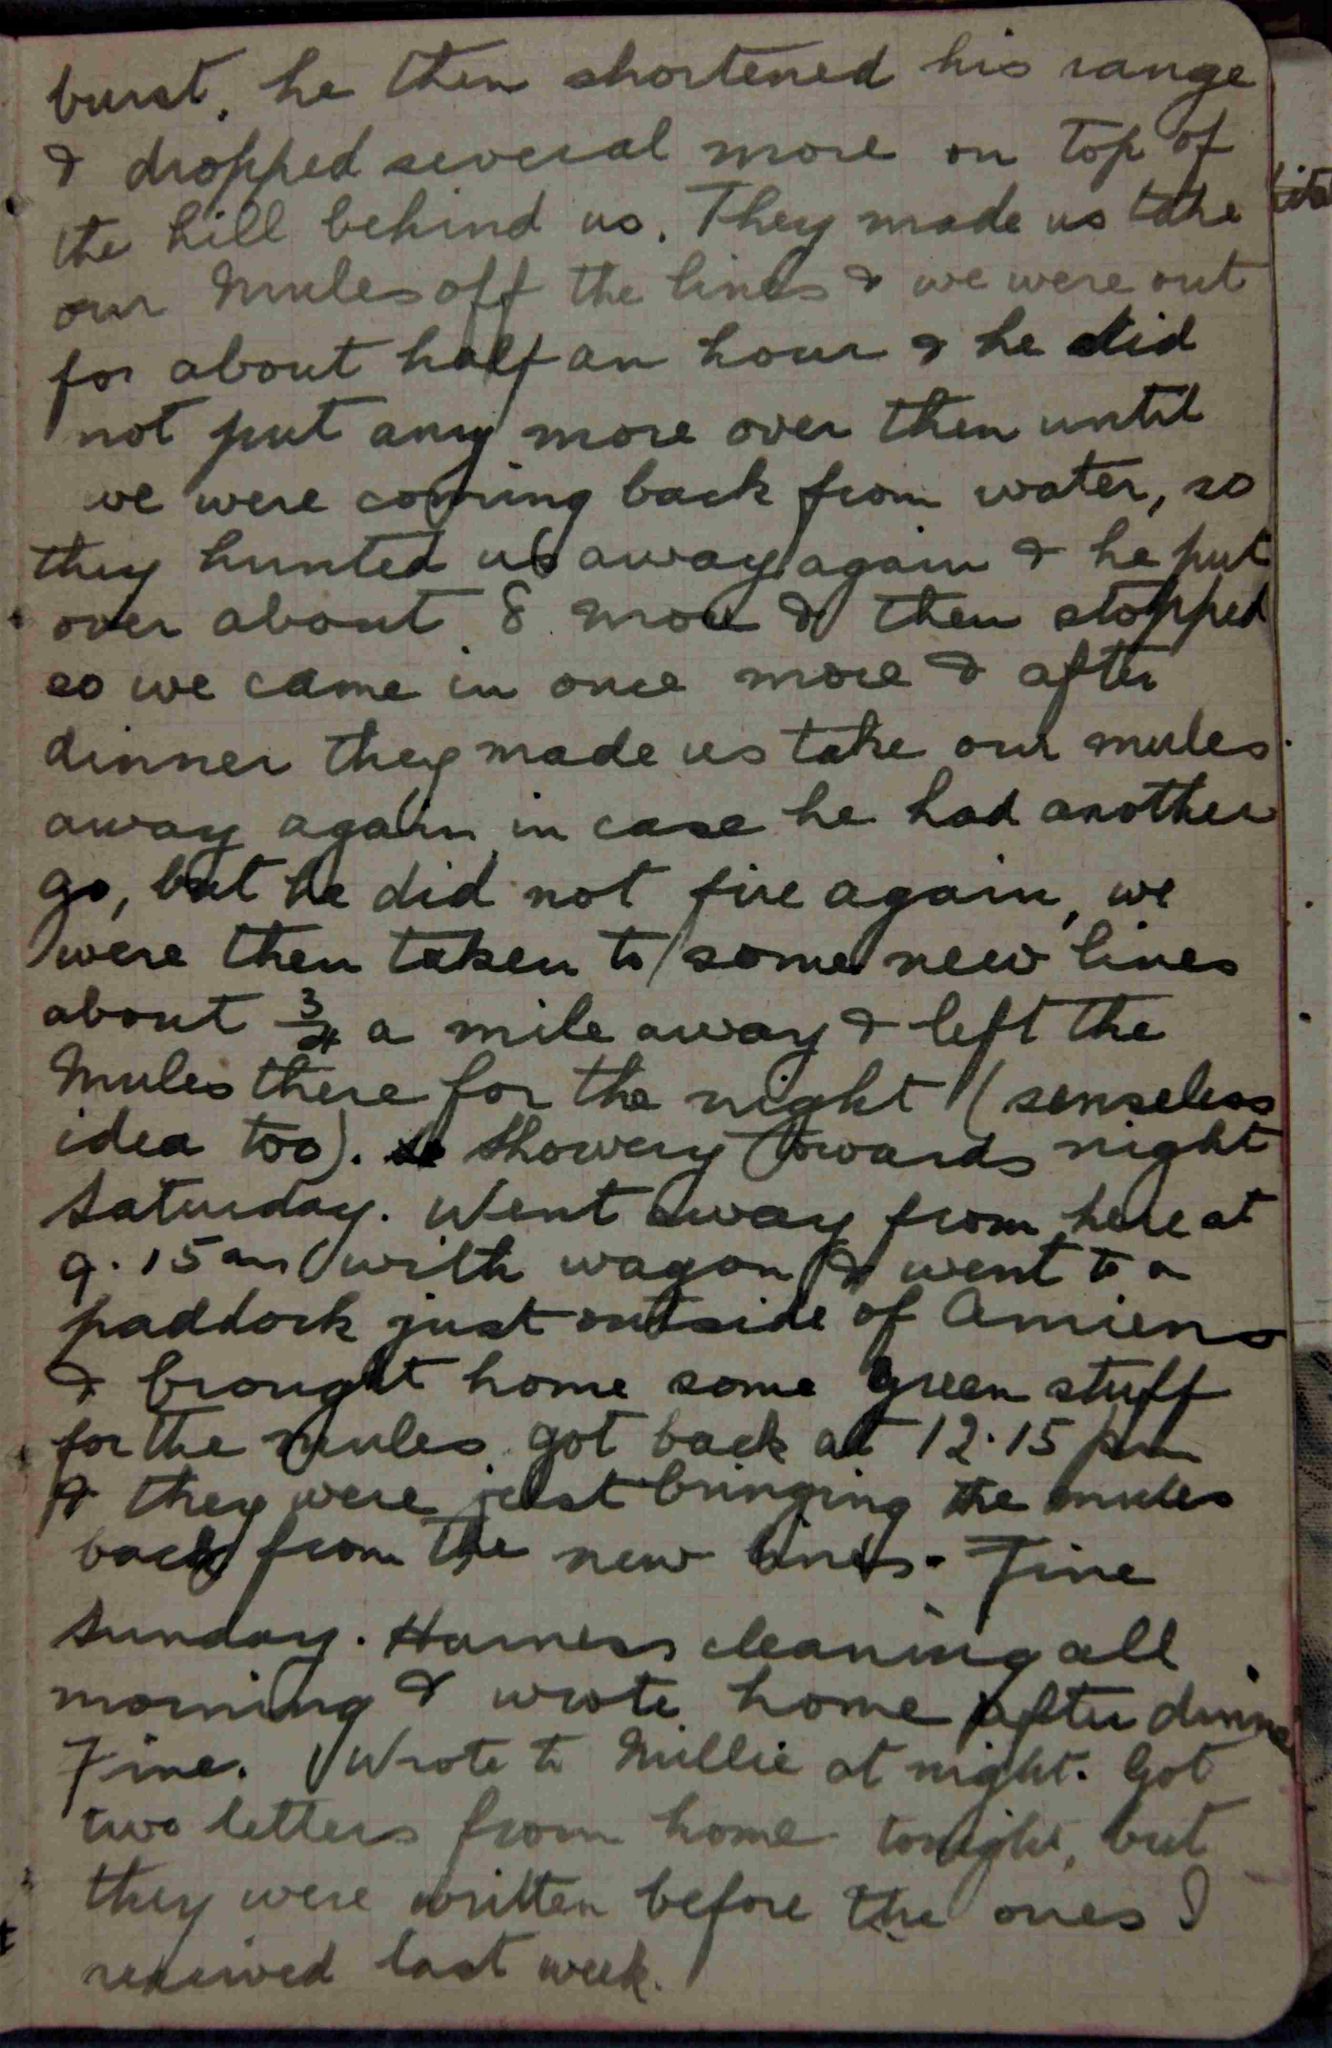 burst, he then shortened his range
& dropped several more on top of
the hill behind us. They made us take
our mules off the lines & we were out
for about half an hour & he did
not put any more over then until
we were coming back from water, so
they hunted us away again & he put
over about 8 more & then stopped
so we came in once more & after
dinner they made us take our mules
away again in case he had another
go, but he did not fire again, we
were then taken to some new lines
about 3/4 a mile away & left the
mules there for the night (senseless
idea too). Showery towards night
Saturday. Went away from here at
9.15 am with wagon & went to a
paddock just outside of Amiens
& brought home some green stuff
for the mules got back at 12.15 pm
& they were just bringing the mules
back from the new lines. Fine
Sunday. Harness cleaning all
morning & wrote home after dinne
Fine. Wrote to Millie at night. Got
two letters from home tonight, but
they were written before the ones I
received last week.